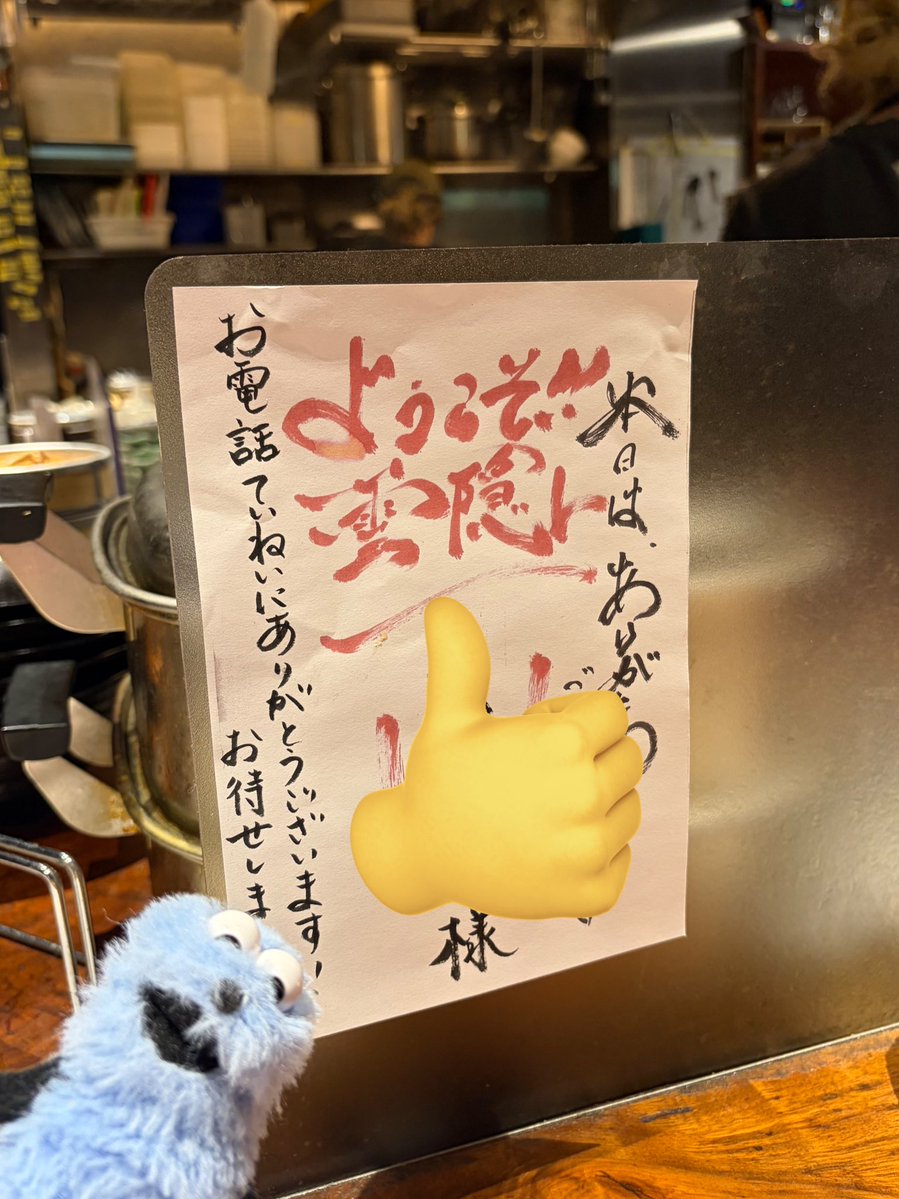 本日は、ありが
ようこそ!!
雲隠
様
お電話ていねいにありがとうございます!
お待せしま